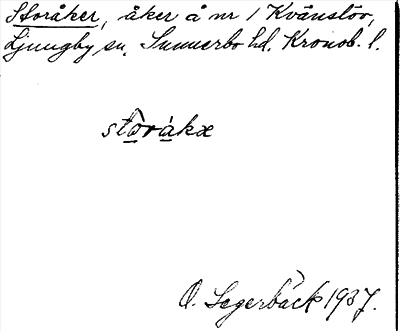 Storåker, åker å nr 1 Kvänslöv,
Ljungby sn. Sunnerbo hd. Kronob. l.
stòråkæ
O. Segerbäck 1937.